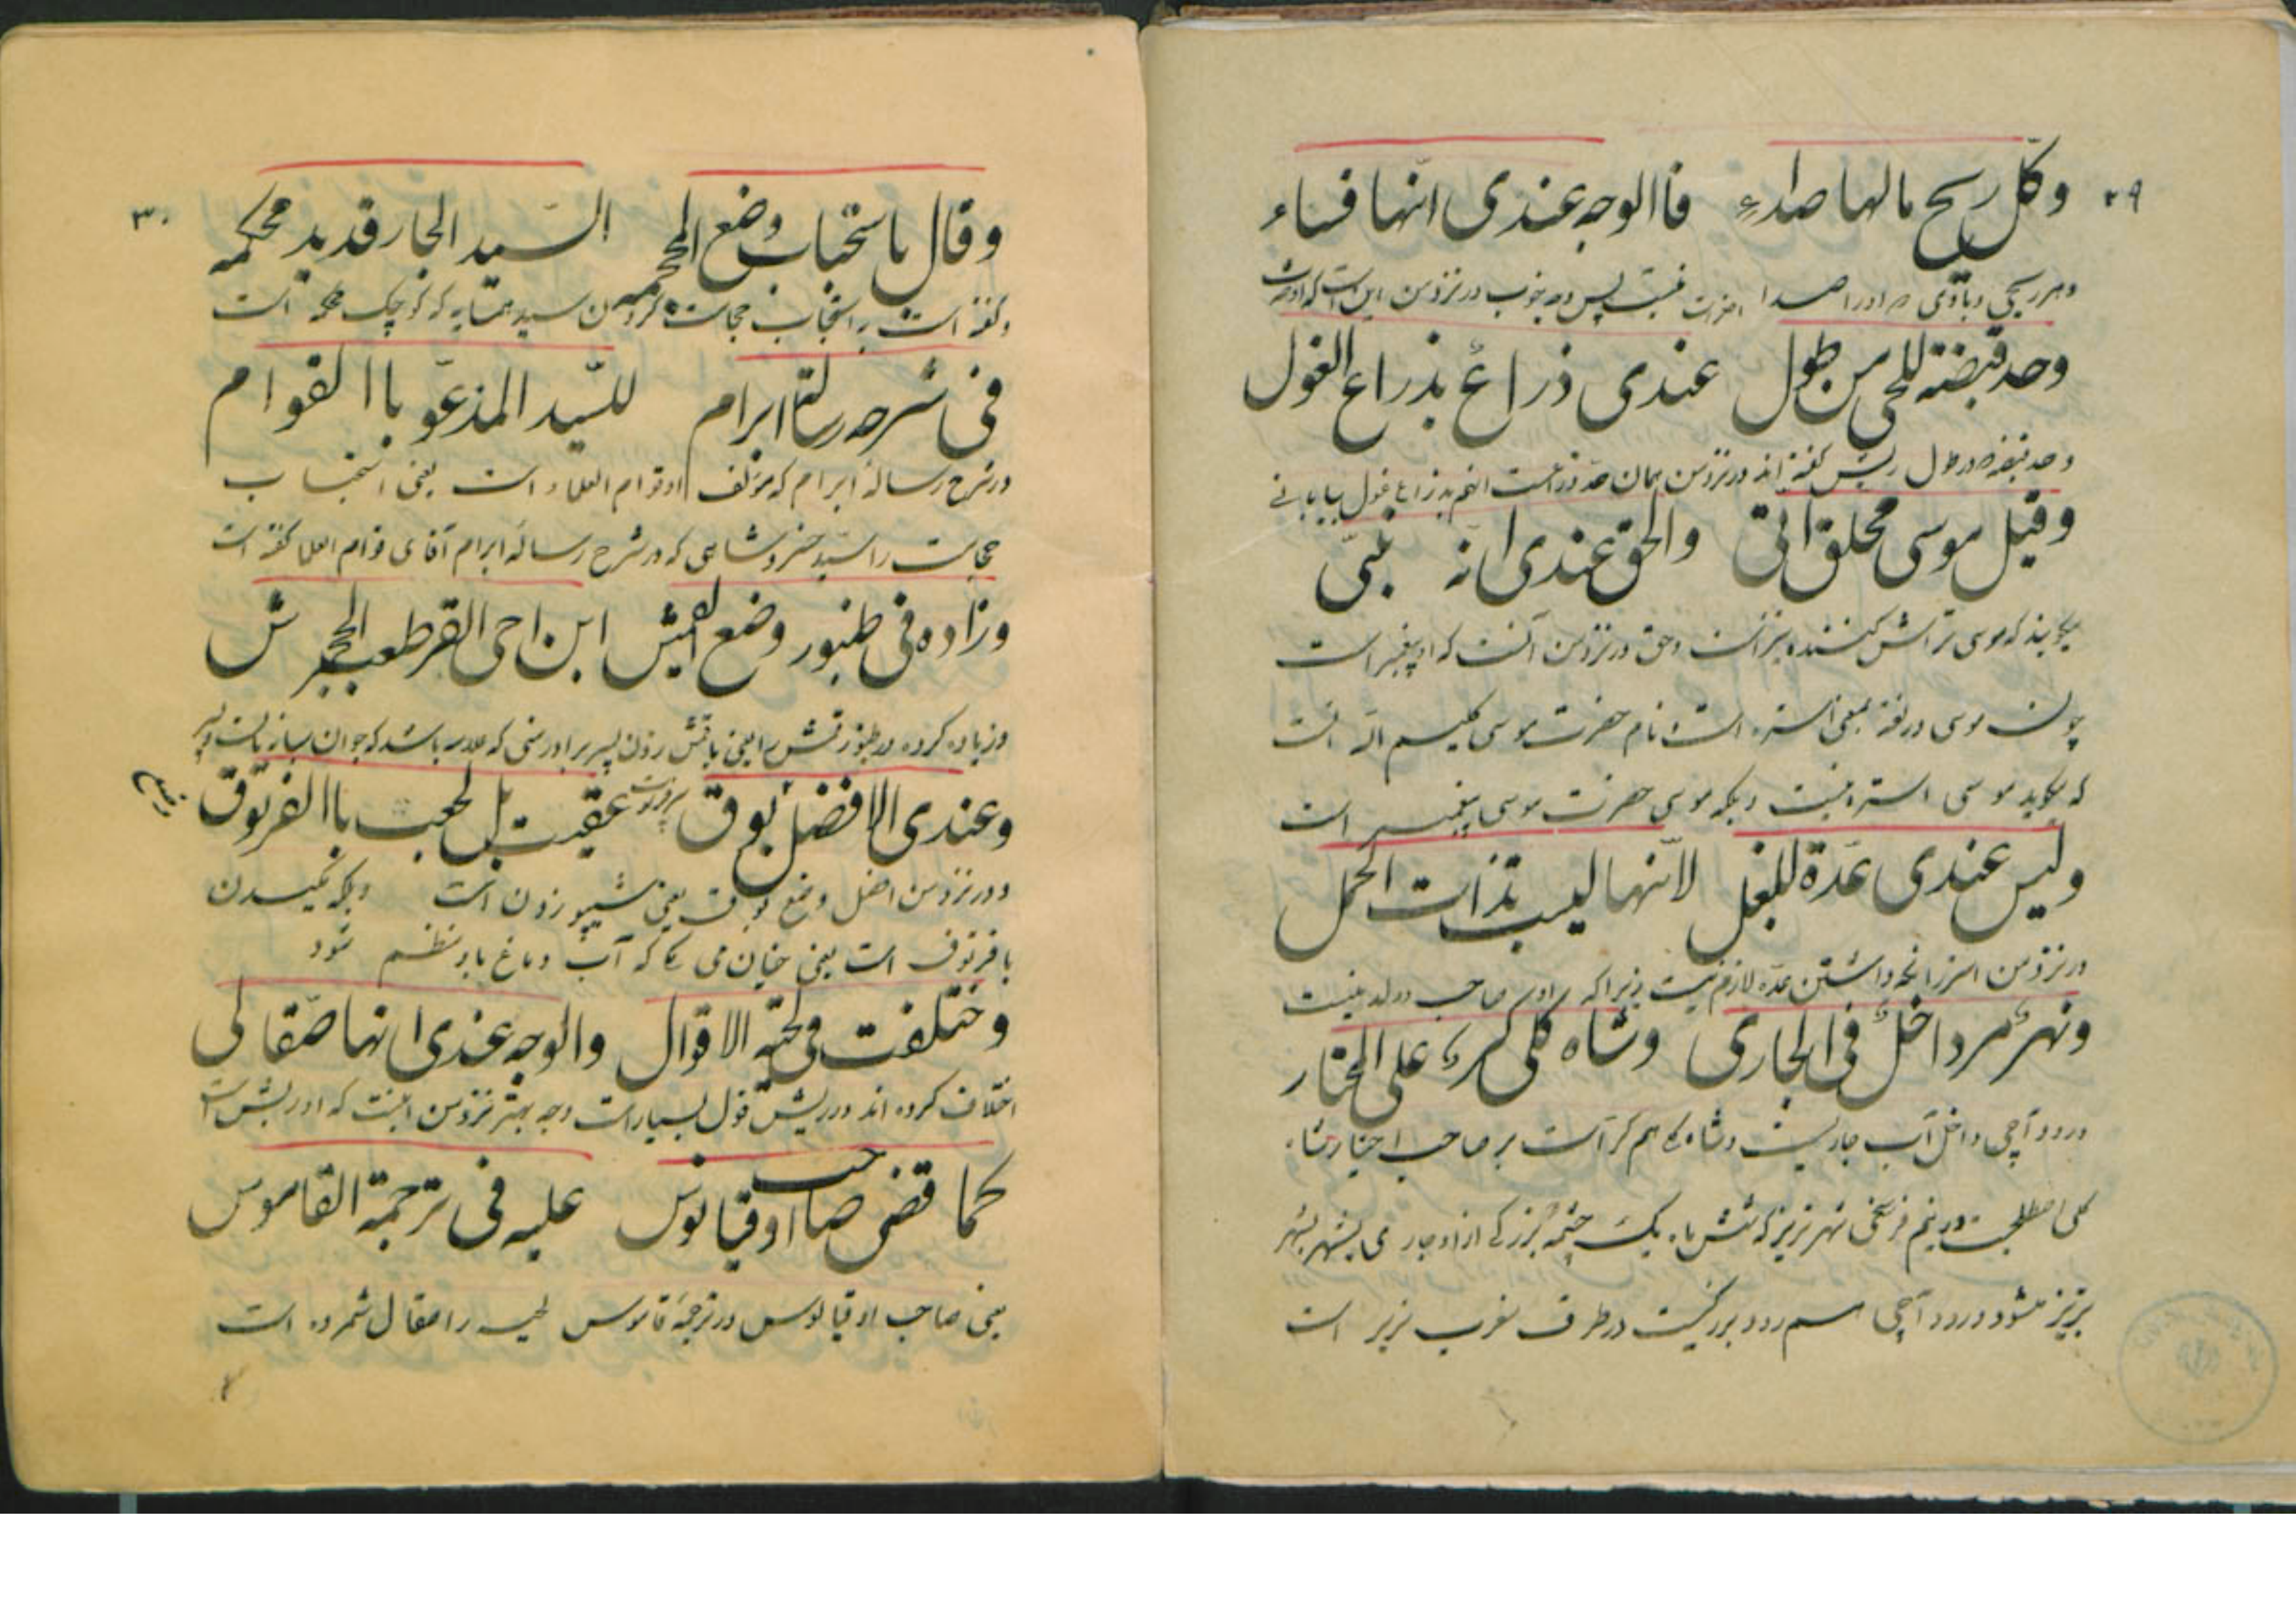 ۲۹
وکل ریح مالها صداء فاالوجه عندی انها فساء
وهر ریحی و بادی مر اورا صدا نیست پس وجه خوب در نزد من این است که او
وحد قبضته للحی من طول عندی ذراع بذراع الغول
وحد قبضه در طول ریش گفته اند در نزد من همان حد ذراعست انهم بذراع غول بیابانی
وقیل موسی محلق اتی والحق عندی انه نبی
میگویند که موسی تراش کننده سر است وحق در نزد من آنست که او پیغمبر است
چون موسی در لغة بمعنی استره است و نام حضرت موسی کلیم الله است
که میگوید موسی استره نیست وبلکه موسی حضرت موسی پیغمبر است
ولیس عندی عدة للبغل لانها لیست بذات الحمل
در نزد من استر زا نگه داشتن عده لازم نیست زیرا که او صاحب ولد نیست
ونهر مرد اخل فی الجاری وشاه کلی کر علی المختار
ورود آچی داخل آب جاریست وشاه کلی هم کر است بر صاحب اختیار شاه
کلی اصطلخیست در نیم فرسخی شهر تبریز که یک چشمه بزرگی از او جاری میشود بشهر
تبریز میشود ورود آچی اسم رود بزرگیست در طرف مغرب تبریز است
۳۰
وقال باستحباب وضع المحجمه السید الجار قدید محکمه
وگفته است به استحباب حجامت کردن سید همسایه که کوچک محکمه است
فی شرحه رسالة ابرام للسید المدعو باالقوام
در شرح رساله ابرام که مؤلف او قوام العلماء است یعنی استحباب
حجامت را سید خسروشاهی که در شرح رساله ابرام آقای قوام العلما گفته است
وزاده فی طنبور وضع القیش ابن اخی القرطعب الحجمرش
وزیاده کرده در طنبور قیش را یعنی باقیش زدن پسر برادر منی که علامه باشد که جوان سازیست و پیر
وعندی الافضل بوق عقیب بل لحب باالفرتوق
ودر نزد من افضل وضع بوق یعنی شیپور زدن است وبلکه لیسیدن
با فرتوق است یعنی چنان می که آب دماغ باو منظم شود
وختلفت فی لحیته الاقوال والوجه عندی انها صقالی
اختلاف کرده اند در ریش قول بسیار است وجه بهتر نزد من اینست که او ریش است
کما قضی صاحب اوقیانوس علیه فی ترجمة القاموس
یعنی صاحب اوقیانوس در ترجمه قاموس لحیه را صقال شمرده است